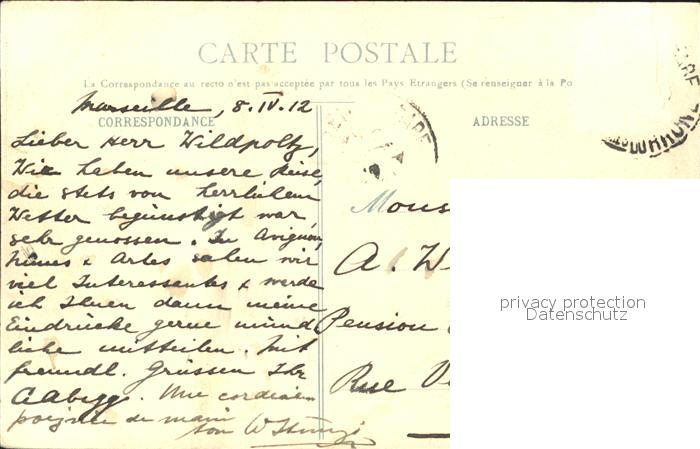 CARTE POSTALE
La Correspondance au recto n'est pas acceptée par tous les Pays Etrangers (Se renseigner à la Po
Marseille, 8.IV.12
CORRESPONDANCE
Lieber Herr Wildpolz,
Wir haben unsere Reise,
die stets von herrlichem
Wetter begünstigt war,
sehr genossen. In Avignon,
Nîmes & Arles sahen wir
viel Interessantes & werde
ich Ihnen dann meine
Eindrücke gerne münd
liche mitteilen. Mit
freundl. Grüssen Ihr
CAbegg. Une cordiale
poignée de main
ADRESSE
Mons
A. W
Pension
Rue
privacy protection
Datenschutz